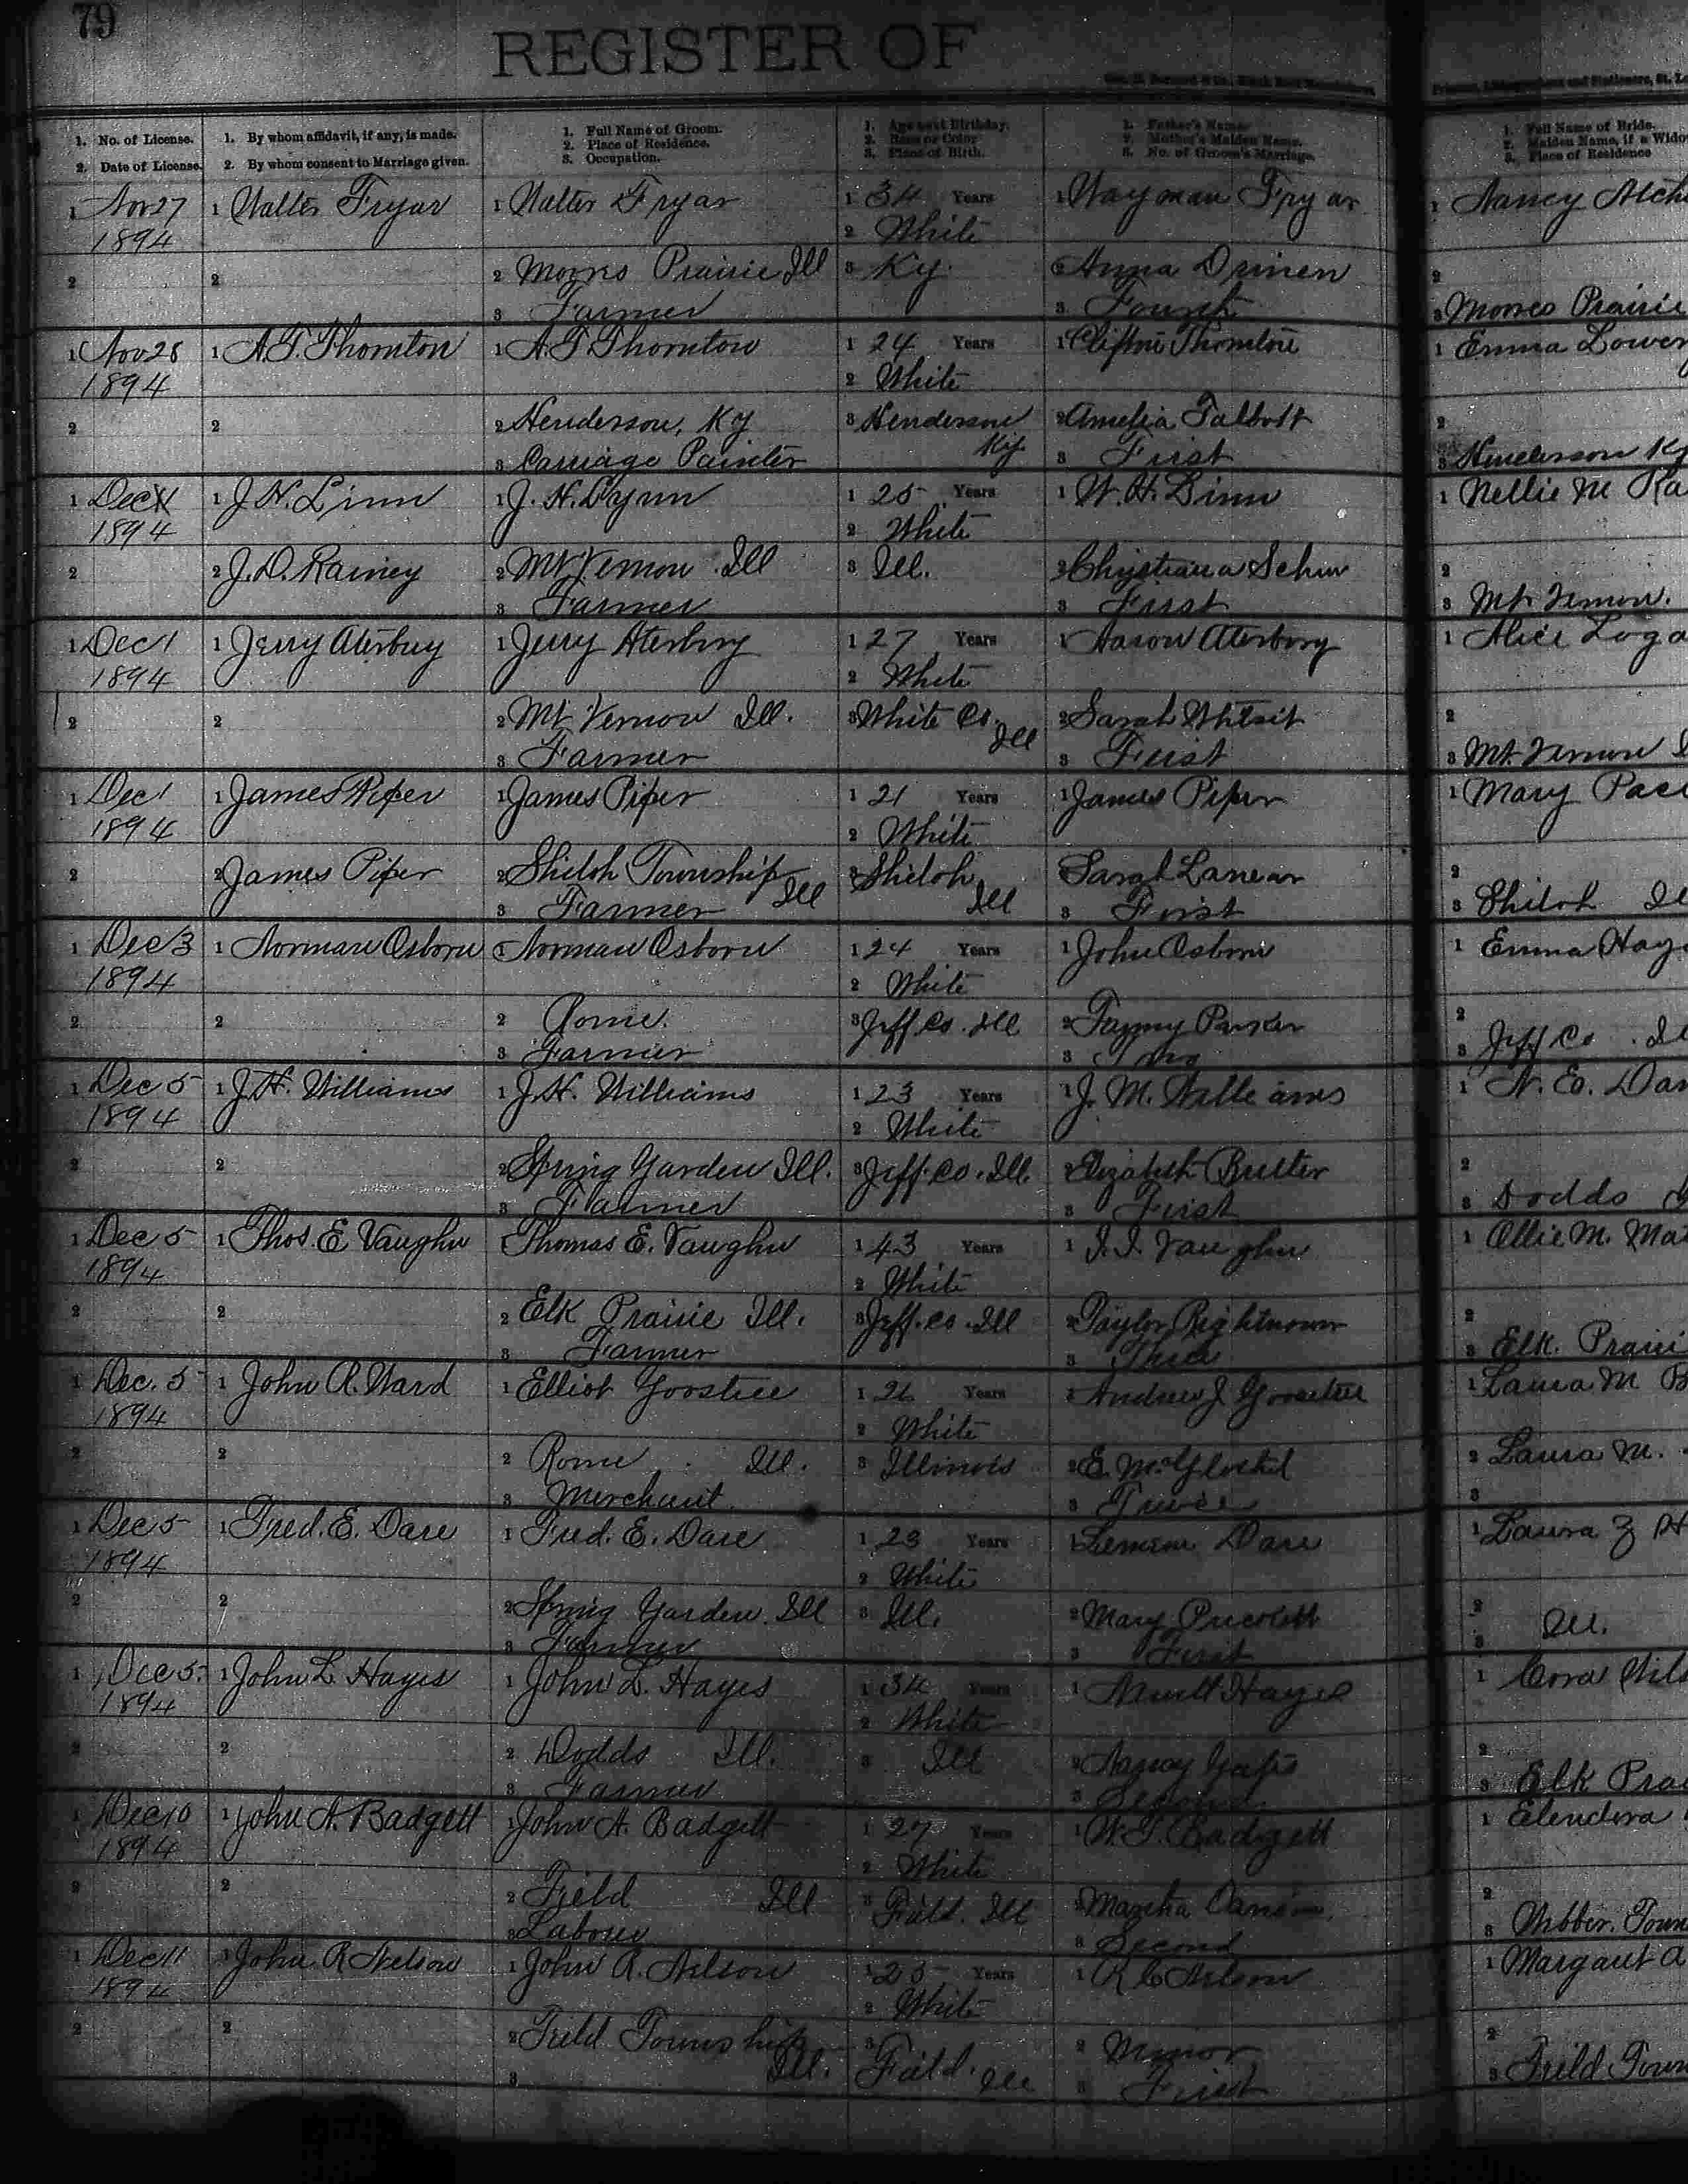 79
REGISTER OF
1. No. of License.
2. Date of License.
1. By whom affidavit, if any, is made.
2. By whom consent to Marriage given.
1. Full Name of Groom.
2. Place of Residence.
3. Occupation.
1. Age next Birthday.
2. Race or Color
3. Place of Birth.
1. Father's Name.
2. Mother's Maiden Name.
3. No. of Groom's Marriage.
1. Full Name of Bride.
2. Maiden Name, if a Wido
3. Place of Residence
1 Nov 27 1 Walter Fryar 1 Walter Fryar 1 34 Years 1 Wayman Fryar 1 Nancy
1894 2 White
2 2 2 Moores Prairie Ill 3 Ky. 2 Anna 2
3 Farmer 3 Fourth 3 Moores Prairie
1 Nov 28 1 A.T. Thornton 1 A T Thornton 1 24 Years 1 Clifton Thornton 1 Emma Lower
1894 2 White
2 2 2 Henderson, Ky 3 Henderson 2 Amelia Talbott 2
3 Carriage Painter Ky 3 First 3 Henderson Ky
1 Dec 1 1 J H. Linn 1 J. H. Lynn 1 25 Years 1 W. H. Linn 1 Nellie M Ra
1894 2 White
2 2 J. D. Rainey 2 Mt Vernon Ill 3 Ill. 2 Christiana 2
3 Farmer 3 First 3 Mt Vernon.
1 Dec 1 1 Jerry Aterbury 1 Jerry Aterbury 1 27 Years 1 Aaron Aterbury 1 Alice Loga
1894 2 White
2 2 2 Mt Vernon Ill. 3 White Co. Ill 2 Sarah Whtsit 2
3 Farmer 3 First 3 Mt. Vernon
1 Dec 1 1 James Piper 1 James Piper 1 21 Years 1 James Piper 1 Mary Pace
1894 2 White
2 2 James Piper 2 Shiloh Township Ill 3 Shiloh Ill 2 Sarah 2
3 Farmer 3 First 3 Shiloh
1 Dec 3 1 Norman Osborn 1 Norman Osborn 1 24 Years 1 John Osborn 1 Emma Hay
1894 2 White
2 2 2 Rome. 3 Jeff. Co. Ill 2 Fanny Parker 2
3 Farmer 3 3 Jeff Co.
1 Dec 5 1 J. H. Williams 1 J. H. Williams 1 23 Years 1 J. M. Williams 1 N. E. Dan
1894 2 White
2 2 2 Spring Garden Ill. 3 Jeff. Co. Ill. 2 Elizabeth 2
3 Farmer 3 First 3 Dodds
1 Dec 5 1 Thos. E Vaughn 1 Thomas E. Vaughn 1 43 Years 1 Vaughn 1 Ollie M. Ma
1894 2 White
2 2 2 Elk Prairie Ill. 3 Jeff. Co. Ill 2 Taylor Rightnower 2
3 Farmer 3 3 Elk. Prairi
1 Dec. 5 1 John R. Ward 1 Elliot Goostree 1 Years 1 Andrew J Goostree 1 Laura M B
1894 2 White
2 2 2 Rome Ill. 3 Illinois 2 E. 2 Laura M.
3 Merchant 3 3
1 Dec 5 1 Fred. E. Dare 1 Fred. E. Dare 1 23 Years 1 Dare 1 Laura Z H
1894 2 White
2 2 2 Spring Garden Ill 3 Ill. 2 Mary 2
3 Farmer 3 First 3 Ill.
1 Dec 5. 1 John L. Hayes 1 John L. Hayes 1 34 Years 1 Hayes 1 Cora Wils
1894 2 White
2 2 2 Dodds Ill. 3 Ill 2 Nancy 2
3 Farmer 3 Second 3 Elk Prai
1 Dec 10 1 John A. Badgett 1 John A. Badgett 1 27 Years 1 W. T. Badgett 1 Elendora
1894 2 White
2 2 2 Field Ill 3 Field. Ill 2 Martha 2
3 Labour 3 Second 3 Webber. Town
1 Dec 11 1 John R Nelson 1 John R. Nelson 1 25 Years 1 R C Nelson 1 Margaret A
1894 2 White
2 2 2 Field Township Ill. 3 Field. Ill 2 Minor 2
3 3 First 3 Field Town